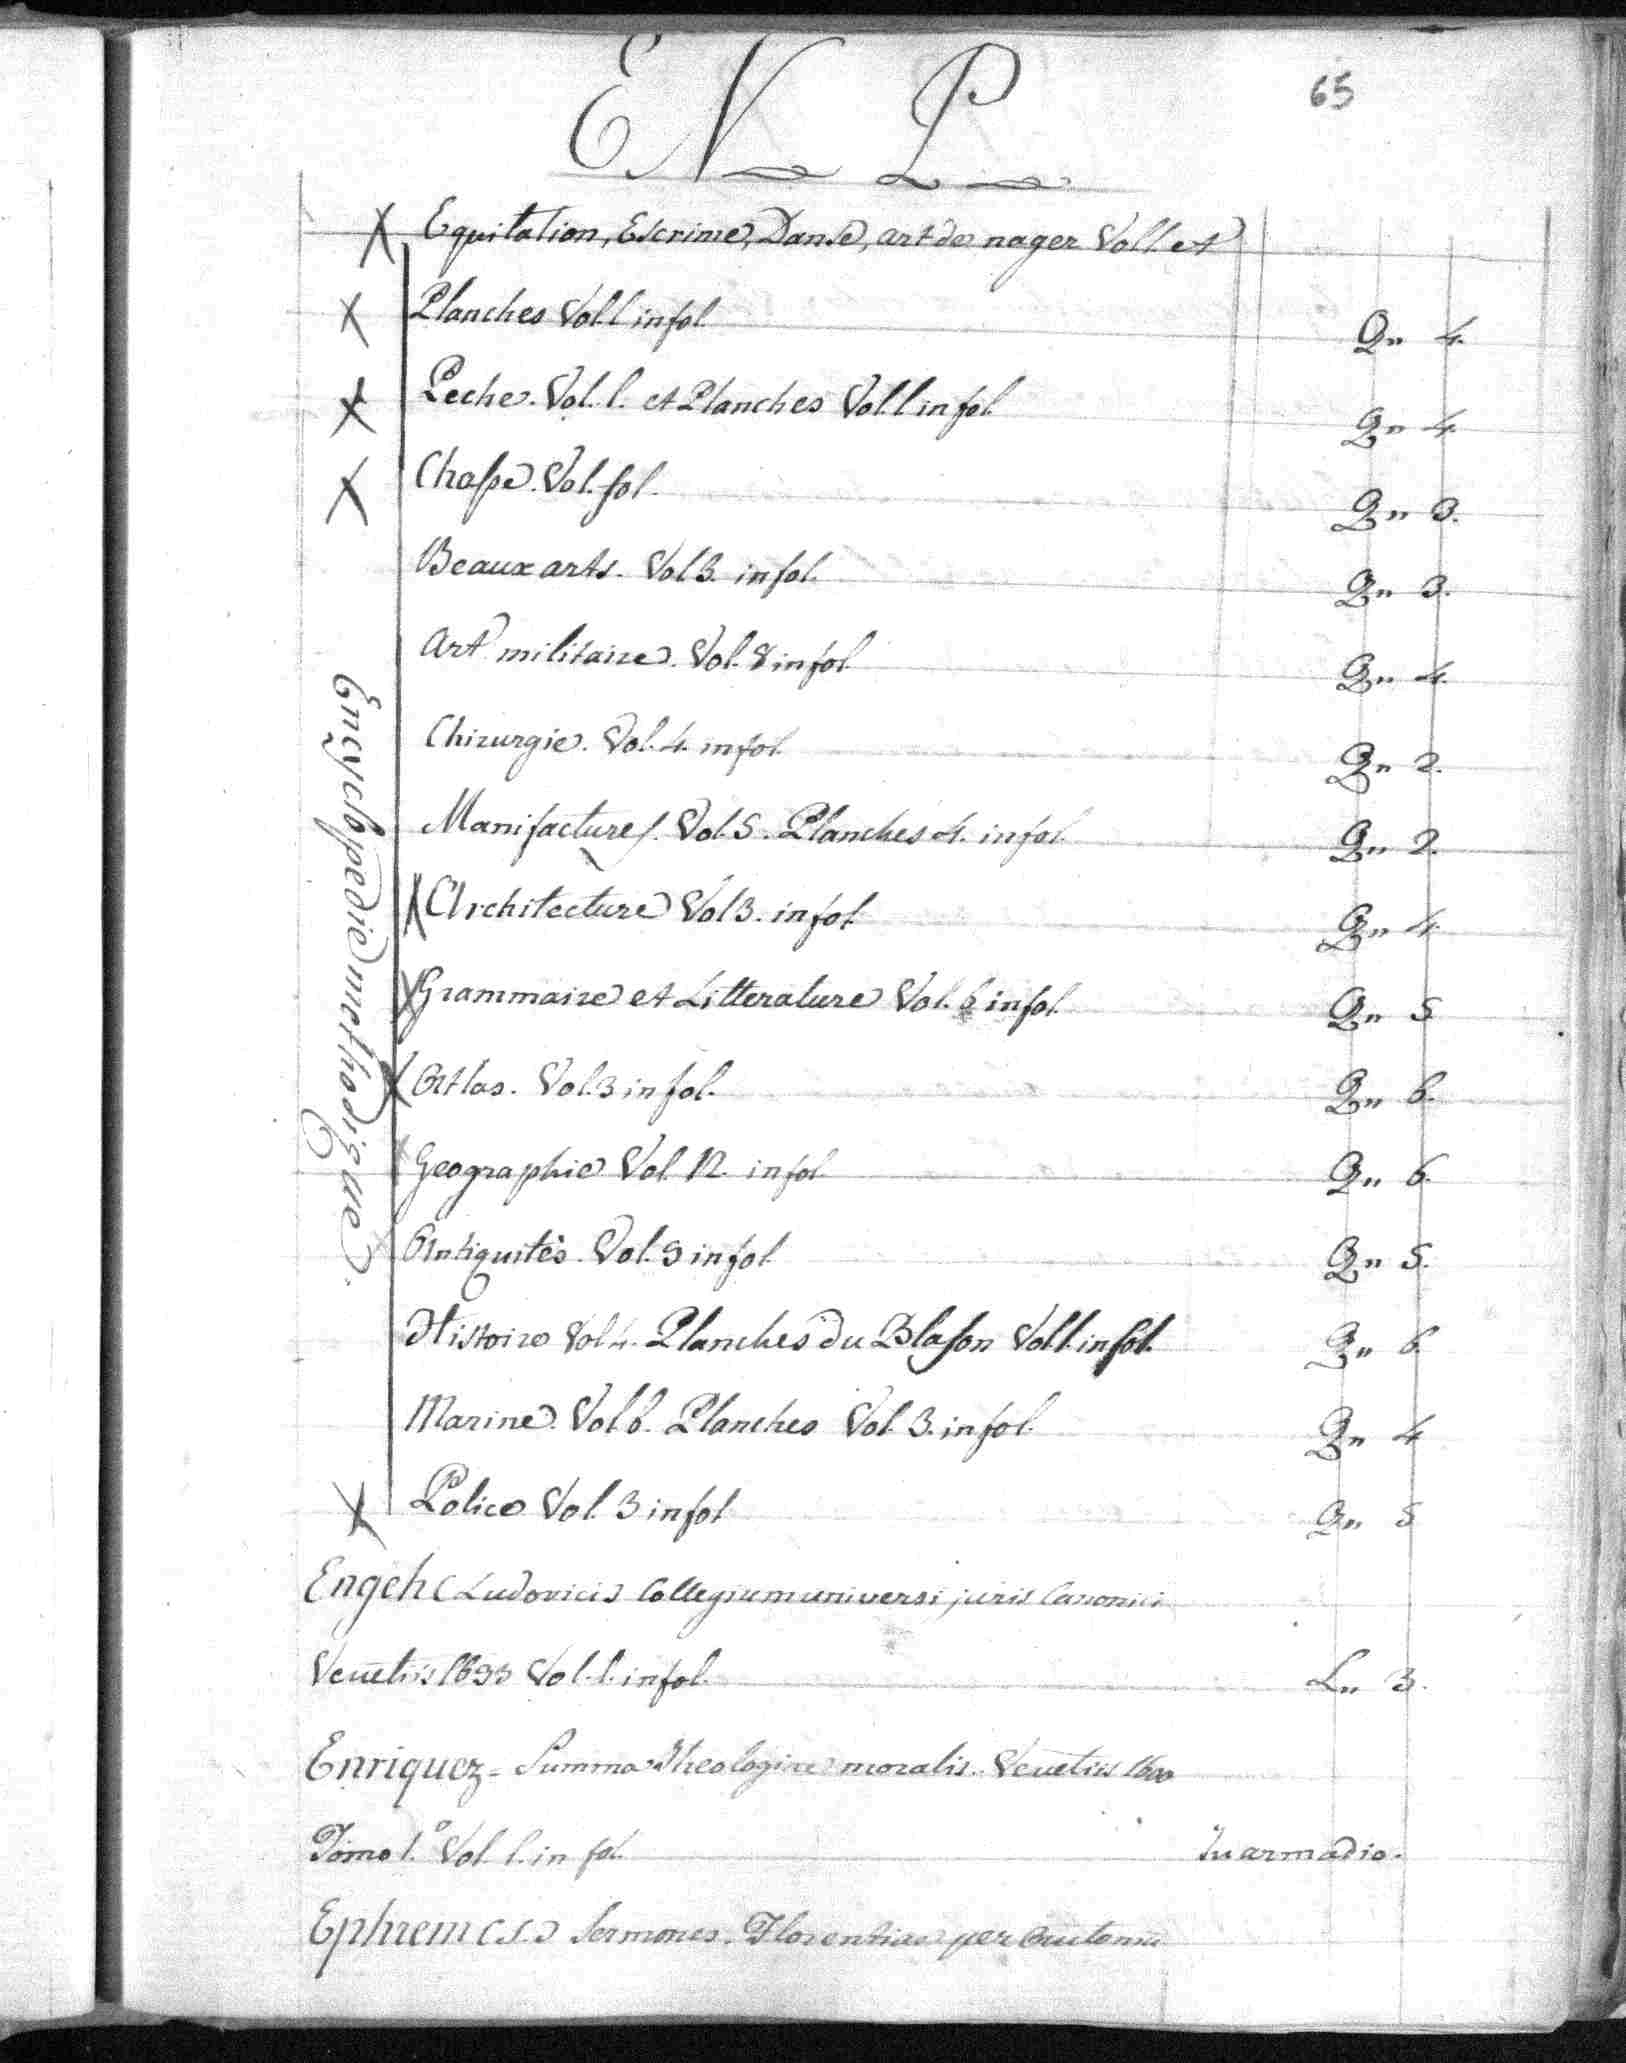 65
E N P
X Equitation, Escrime, Danse, art de nager Vol 1 et
X Planches Vol. 1 in fol. Q„ 4.
X Peche. Vol. 1. et Planches Vol. 1 in fol. Q„ 4.
X Chasse. Vol. fol. Q„ 3.
Beaux arts. Vol 3. in fol. Q„ 3.
Art militaire. Vol. 8 in fol Q„ 4.
Chirurgie. Vol. 4. in fol. Q„ 2.
Manifactures. Vol. 5. Planches 4. in fol. Q„ 2.
X Architecture Vol 3. in fol. Q„ 4.
X Grammaire et Litterature Vol. 6 in fol. Q„ 5
X Atlas. Vol. 3 in fol. Q„ 6.
X Geographie Vol. 12. in fol. Q„ 6.
X Antiquités. Vol. 3 in fol. Q„ 5.
Histoire Vol 4. Planches du Blason Vol 1. in fol. Q„ 6.
Marine. Vol 6. Planches Vol. 3. in fol. Q„ 4
X Police Vol. 3 in fol Q„ 5
Encyclopedie methodique.
Engel (Ludovici) Collegium universi juris Canonici
Venetiis 1693 Vol. 1. in fol. L„ 3.
Enriquez = Summa Theologiae moralis. Venetiis 1600
Tomo 1.º Vol. 1. in fol. In armadio.
Ephrem (S.) Sermones. Florentiae per Antoniu